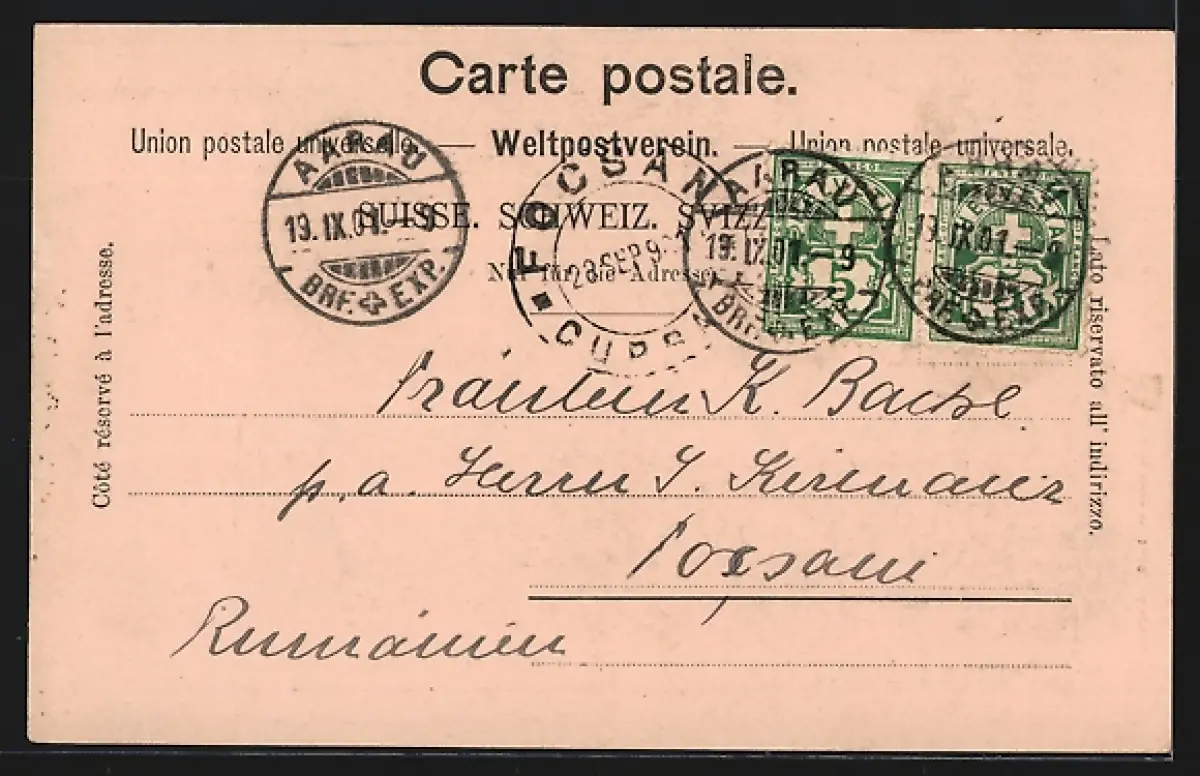 Carte postale.
Union postale universelle. — Weltpostverein. — Union postale universelle.
SUISSE. SCHWEIZ. SVIZZ
Nur für die Adresse
Côté réservé à l'adresse.
Lato riservato all' indirizzo.
AARAU
19.IX.01.-9
BRF.EXP.
FOCSANI
SEP 9
CURS
AARAU
19.IX.01.-9
BRF.EXP.
HELVETIA
19.IX.01.-9
BRF.EXP.
FRANCO
5
Fräulein K.
p.a. Herrn J.
Focsani
Rumänien